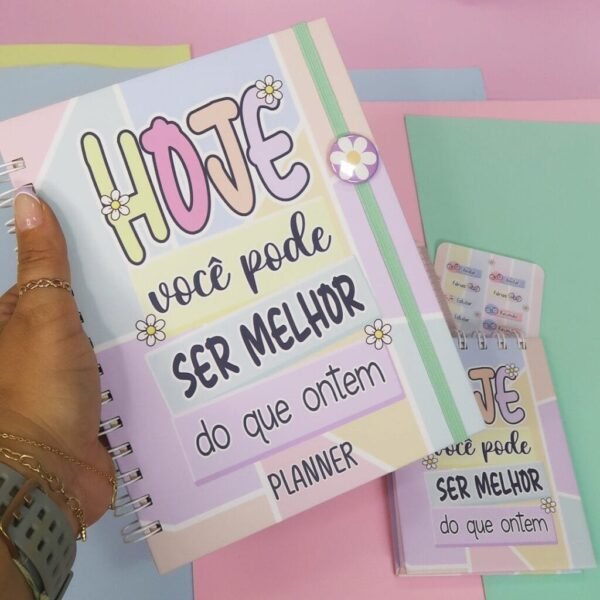 HOJE
você pode
SER MELHOR
do que ontem
PLANNER
JE
você pode
SER MELHOR
do que ontem